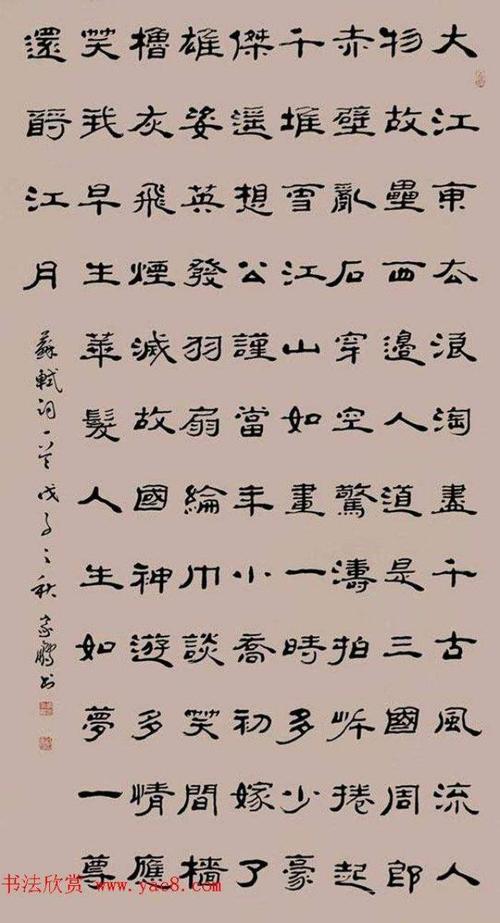 大江東去浪淘盡千古風流人
物故壘西邊人道是三國周郎
赤壁亂石穿空驚濤拍岸捲起
千堆雪江山如畫一時多少豪
傑遥想公謹當年小喬初嫁了
雄姿英發羽扇綸巾談笑間檣
櫓灰飛煙滅故國神遊多情應
笑我早生華髮人生如夢一尊
還酹江月
蘇軾詞一首戊子之秋家鵬書
书法欣赏 www.yac8.com